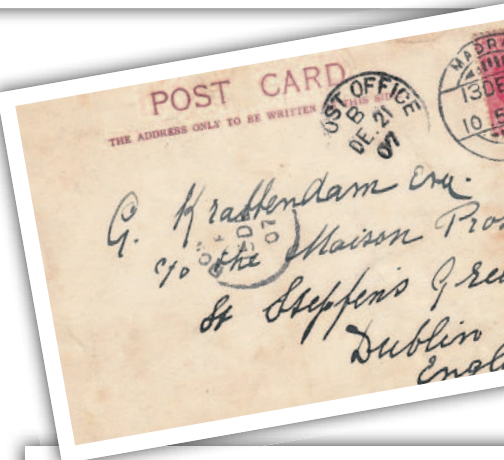 POST CARD
THE ADDRESS ONLY TO BE WRITTEN THIS SIDE
POST OFFICE
B
DE. 21
07
MADR
13 DE
10
G. Krabbendam Esq.
c/o the Maison Pro
St Steffens Gree
Dublin
Engl